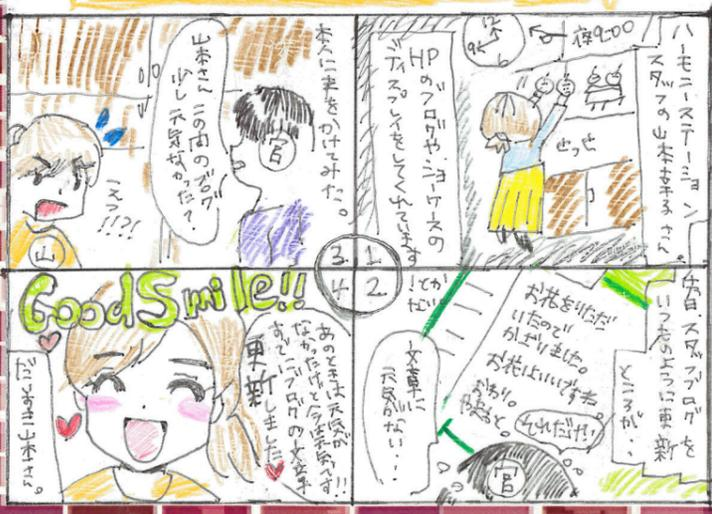 1
ハーモニーステーション
スタッフの山本幸子さん。
夜9:00
12
9
せっせ
HPのブログやショーケースの
ディスプレイをしてくれています
2
毎日スタッフブログを
いつものように更新
ところが…
お花をいただ
いたので
かざりました。
お花はいいですね
おわり。
やまもと。
それだけ!!
文章に
元気がない・・
官
3
本人に声をかけてみた。
山本さんこの間のブログ
少し元気なかったて?
官
えっ!!?!
山
4
GoodSmile!!
あのときは元気が
なかったけど今は元気です!!
すでにブログの文章
更新しました
だいすき山本さん。